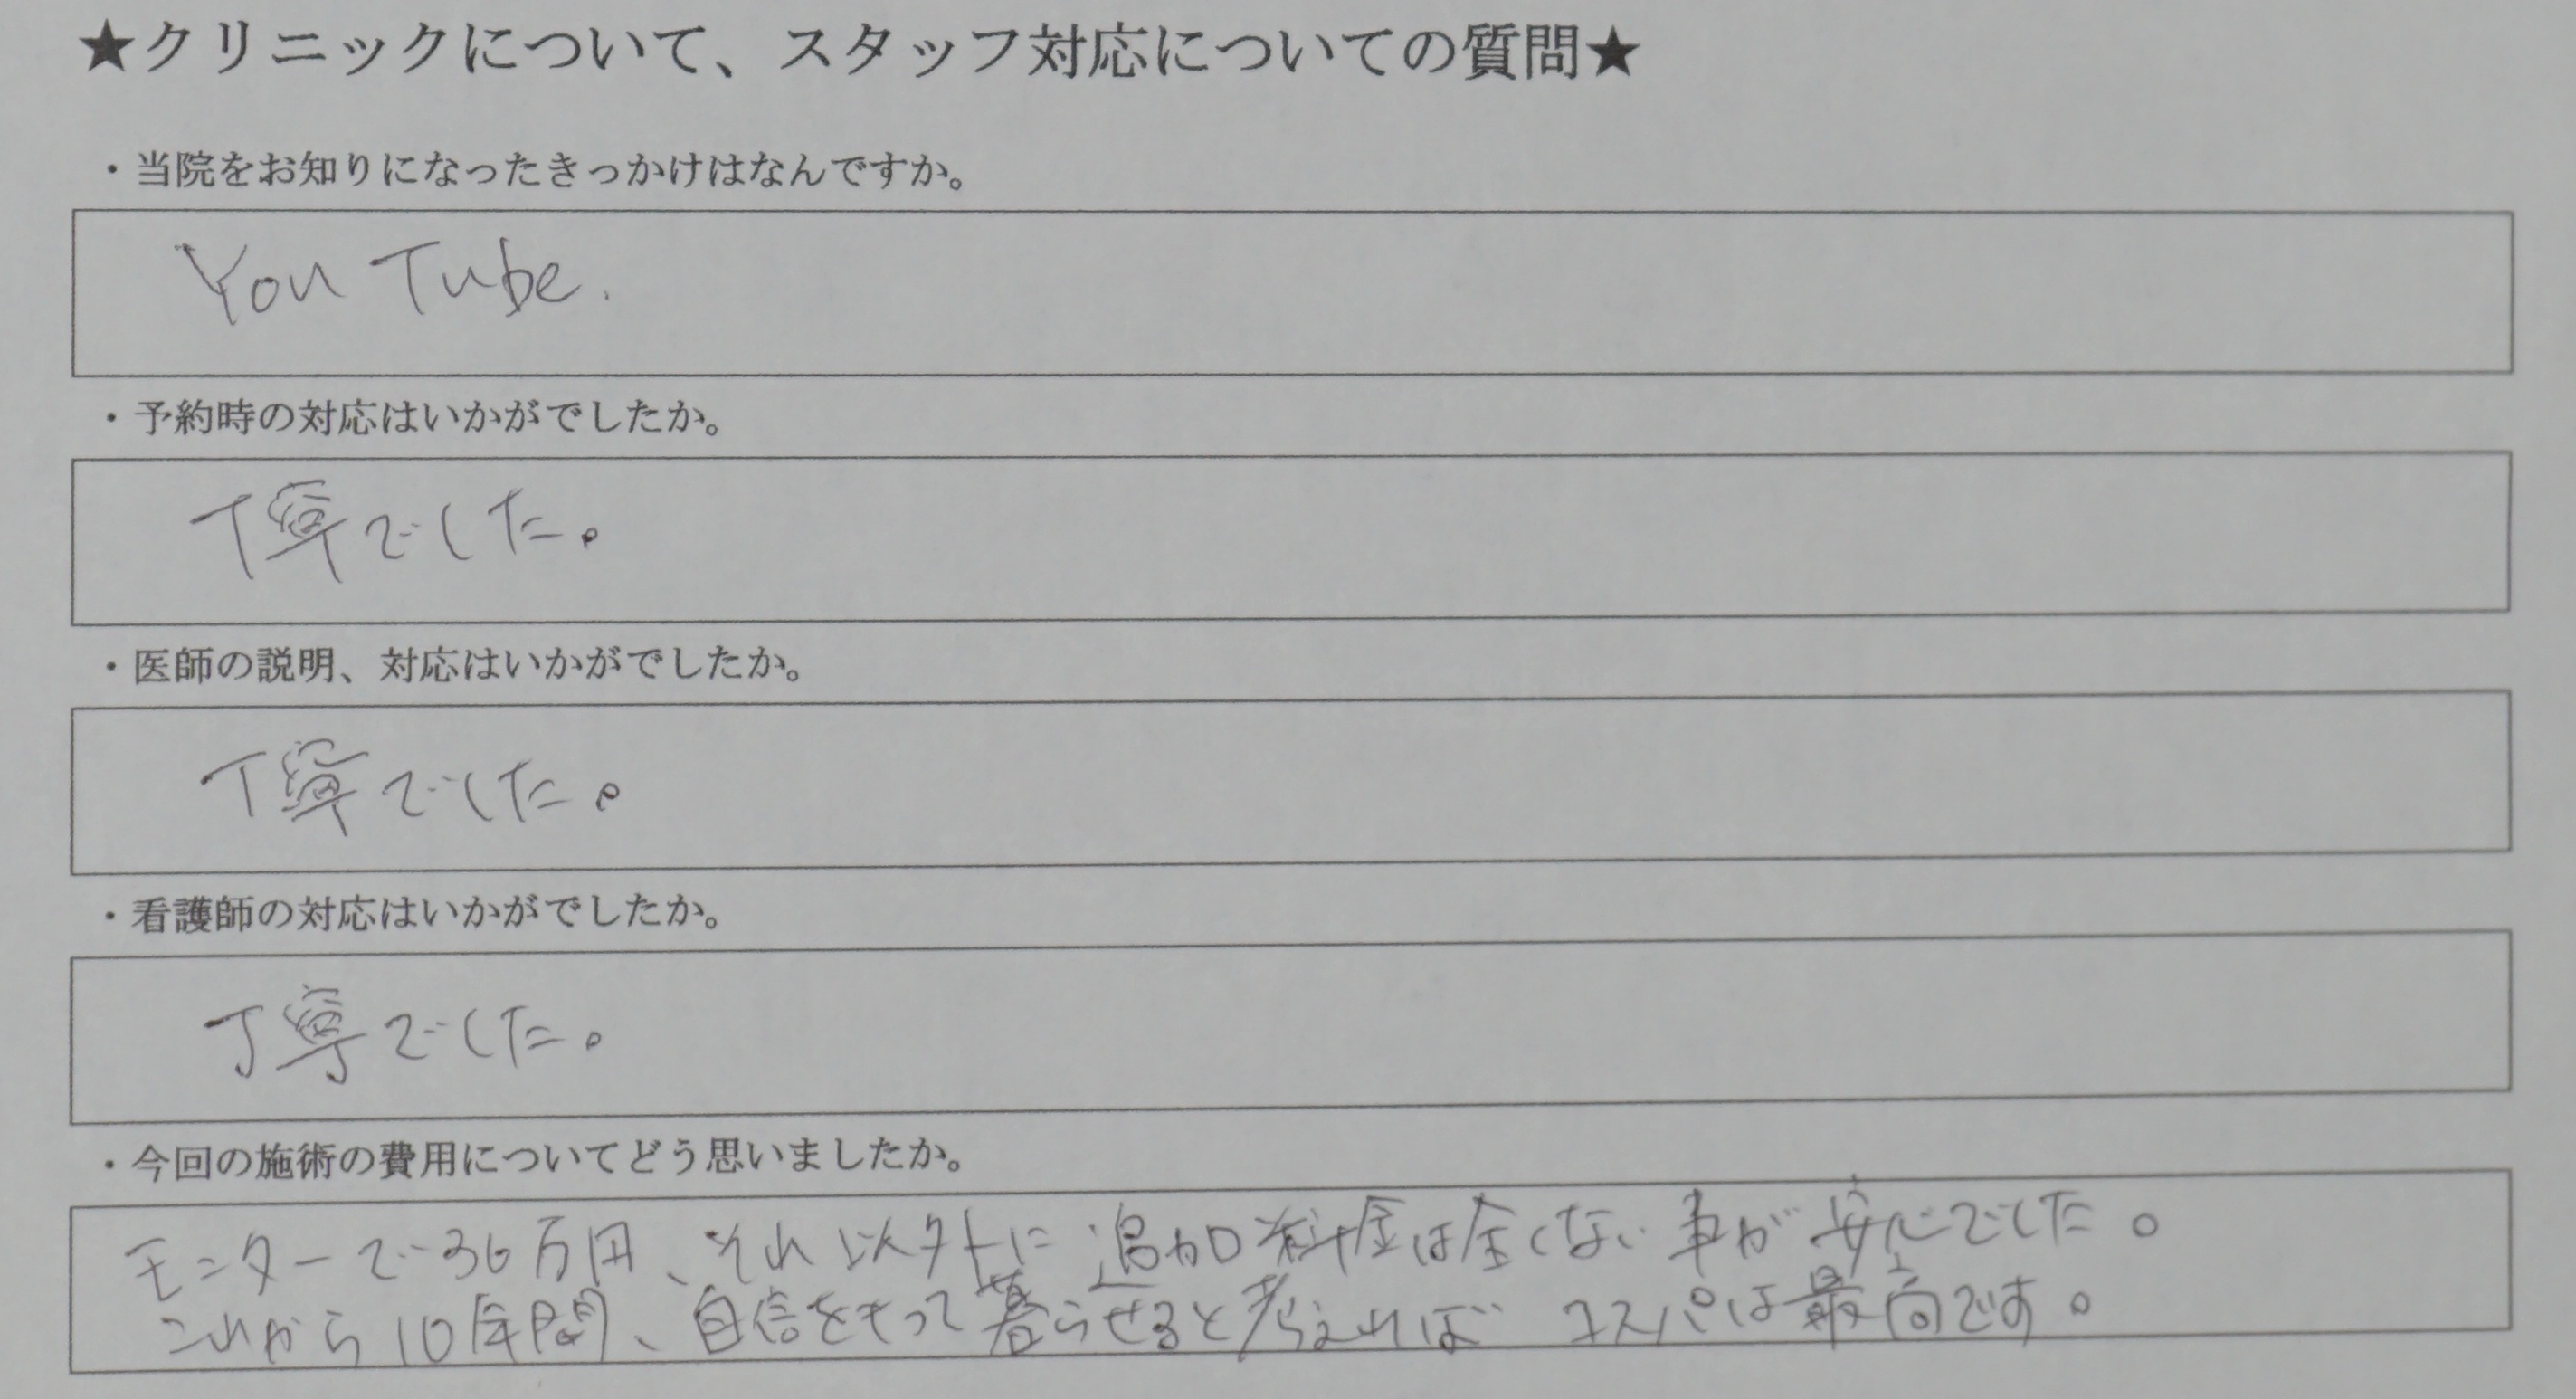 ★クリニックについて、スタッフ対応についての質問★
・当院をお知りになったきっかけはなんですか。
YouTube.
・予約時の対応はいかがでしたか。
丁寧でした。
・医師の説明、対応はいかがでしたか。
丁寧でした。
・看護師の対応はいかがでしたか。
丁寧でした。
・今回の施術の費用についてどう思いましたか。
モニターで36万円、それ以外に追加料金は全くない事が安心でした。
これから10年間、自信をもって暮らせると考えれば コスパは最高です。